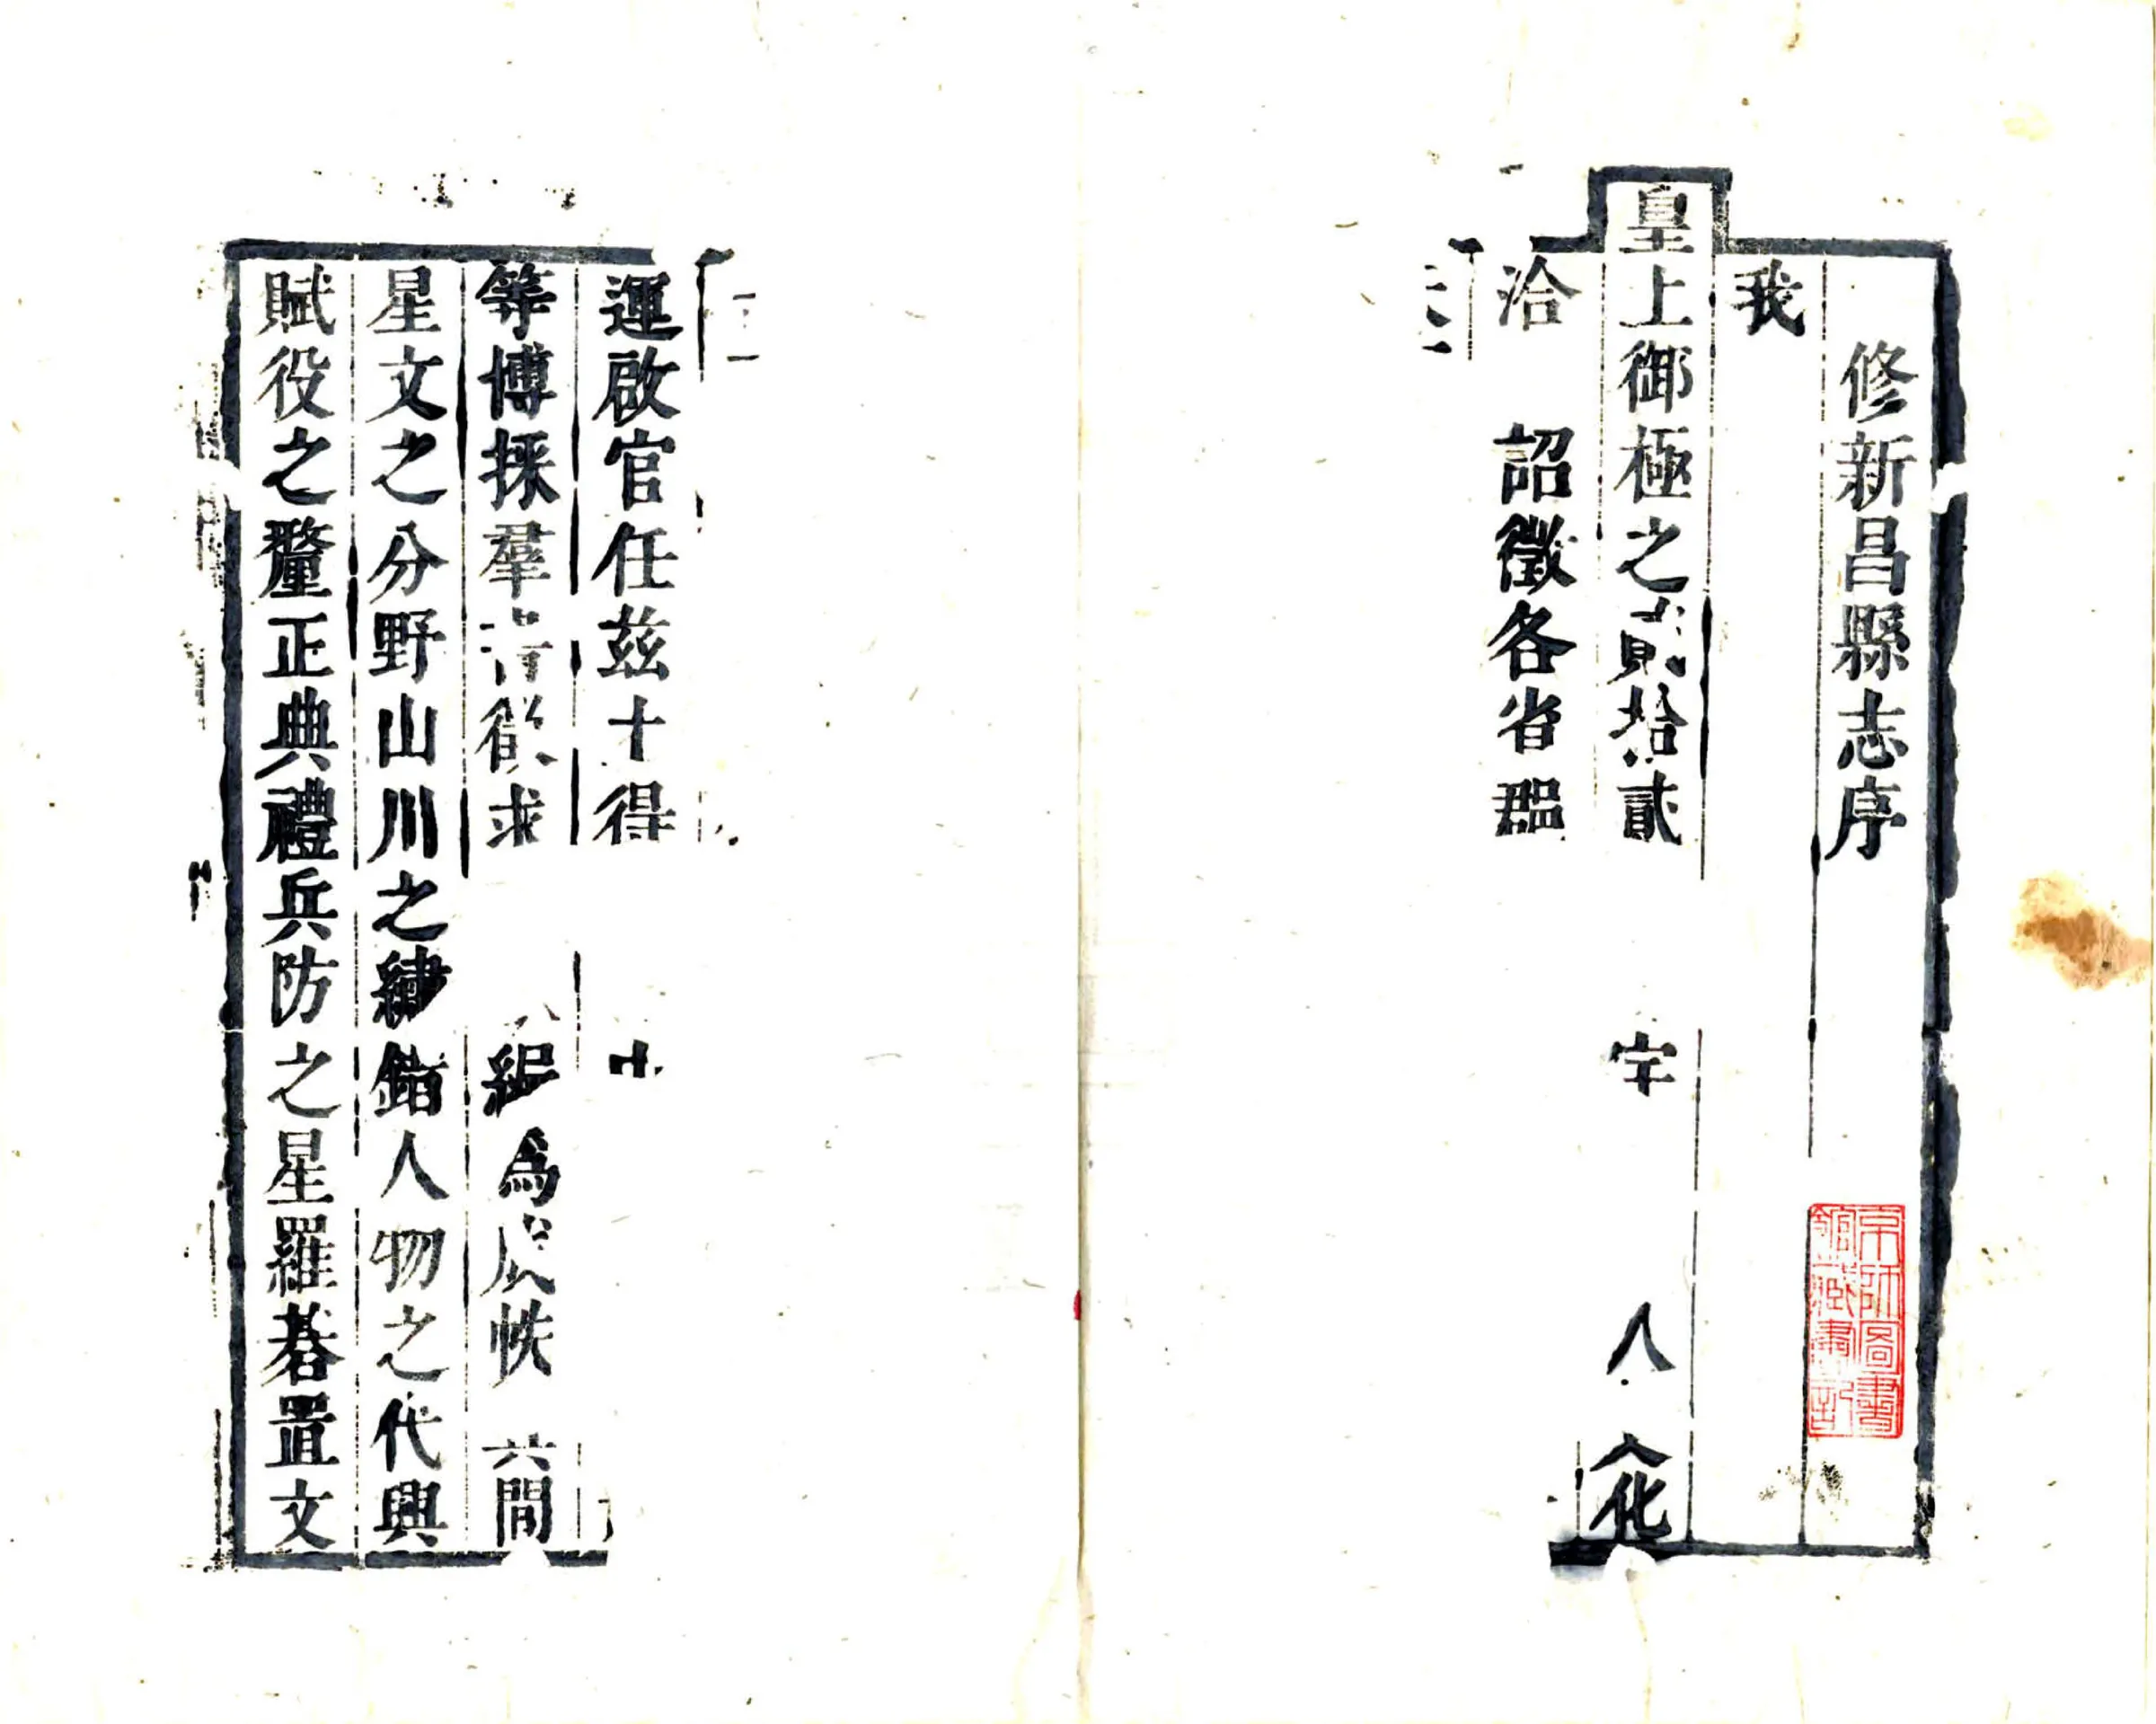 修新昌縣志序
我
皇上御極之貳拾貳字人文化
洽 詔徵各省郡
運啟官任茲十得
等博採羣書從求編為成帙其間
星文之分野山川之繡錯人物之代興
賦役之釐正典禮兵防之星羅碁置文
京師圖書
館藏書記